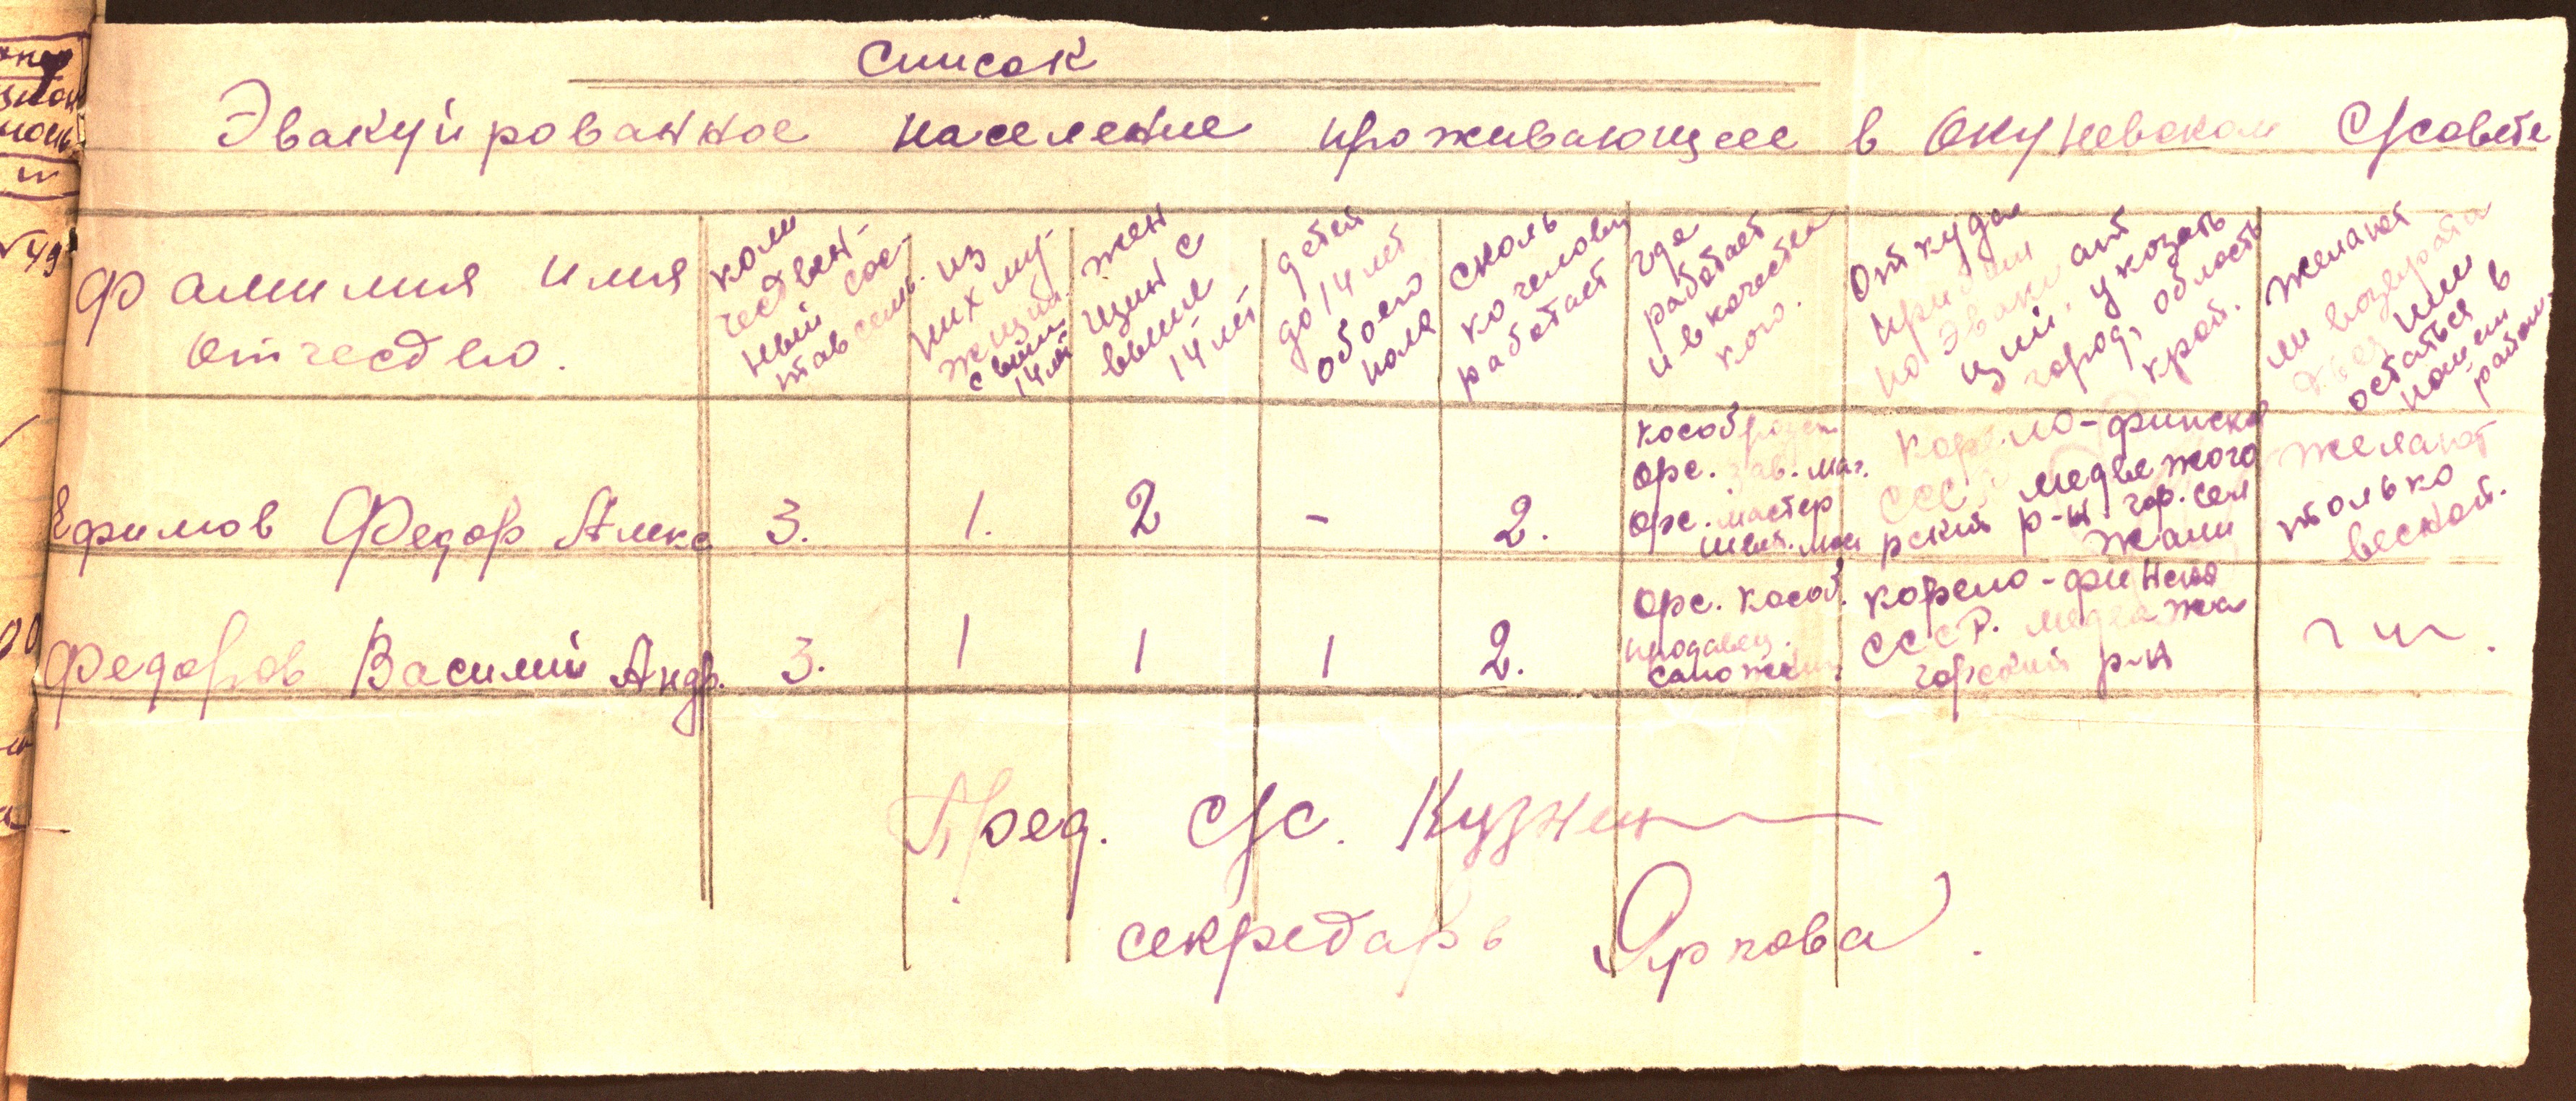 Список
Эвакуированное население проживающее в Окуневском С/совете
Фамилия имя
отчесдво.
коли
чествен-
ный сос-
тав семь.
из
них му-
жчин
с выше
14 лет
жен
щин с
выше
14 лет
детей
до 14 лет
обоего
пола
сколь
ко человек
работает
где
работает
и в качестве
кого.
Откуда
прибыли
по эваку
ции, указать
город, область
край.
Желают
ли
остаться
в
нашем
районе
Ефимов Федор Алекс
3.
1.
2
-
2.
Орс. зав. маг.
Орс. мастер
корело-финска
СССР медвежого
рский р-н
желают
только
весной.
Федоров Василий Андр.
3.
1
1
1
2.
Орс. кособ.
продавец.
сапожник
корело-финская
СССР. медвежа
горский р-н
-"-.
Пред. С/с.
секредарь Яркова.